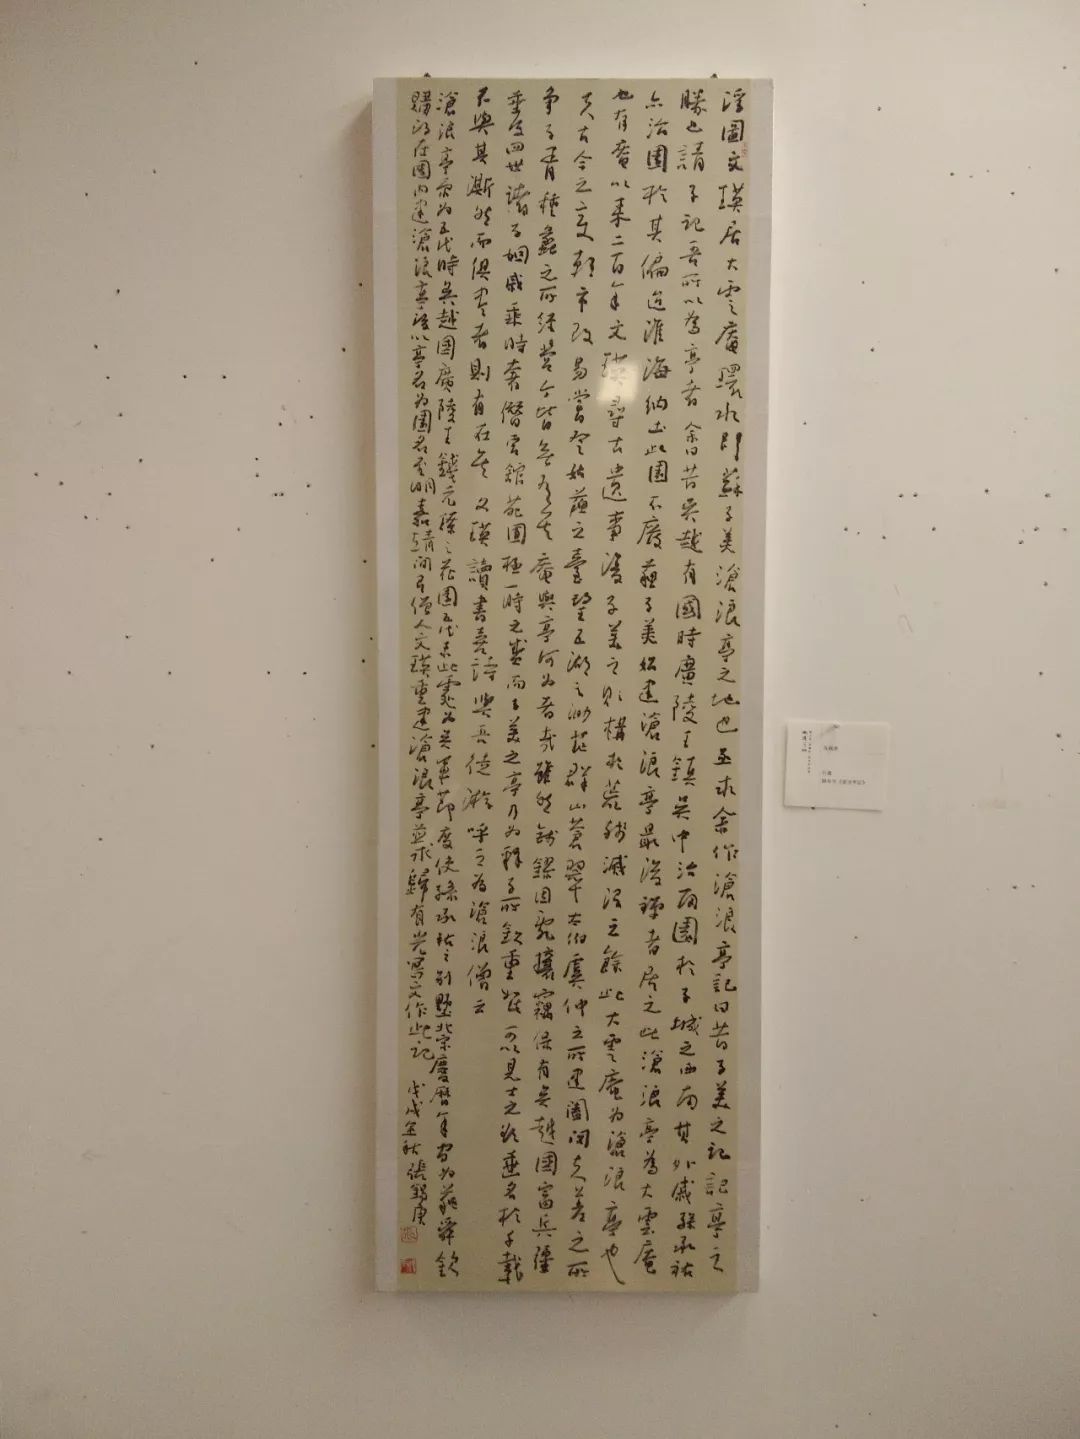 浮圖文瑛居大雲庵環水即蘇子美滄浪亭之地也亟求余作滄浪亭記曰昔子美之記記亭之
勝也請子記吾所以為亭者余曰昔吳越有國時廣陵王鎮吳中治南園於子城之西南其外戚孫承祐
亦治園於其偏迨淮海納土此園不廢蘇子美始建滄浪亭最後禪者居之此滄浪亭為大雲庵
也有庵以來二百年文瑛尋古遺事復子美之構於荒殘滅沒之餘此大雲庵為滄浪亭也
夫古今之變朝市改易嘗登姑蘇之臺望五湖之渺茫群山蒼翠太伯虞仲之所建闔閭夫差之所
爭子胥種蠡之所經營今皆無有矣庵與亭何為者哉雖然錢鏐因亂攘竊保有吳越國富兵強
垂及四世諸子姻戚乘時奢僭宮館苑囿極一時之盛而子美之亭乃為釋子所欽重如此可以見士之欲垂名於千載
不與其澌然而俱盡者則有在矣文瑛讀書喜詩與吾徒游呼之為滄浪僧云
滄浪亭原為五代時吳越國廣陵王錢元璙之花園五代末此處為吳軍節度使孫承祐之別墅北宋慶曆年間為蘇舜欽
購得在園內建滄浪亭後以亭名為園名至明嘉靖間有僧人文瑛重建滄浪亭並求歸有光寫文作此記 戊戌 秋張錫庚